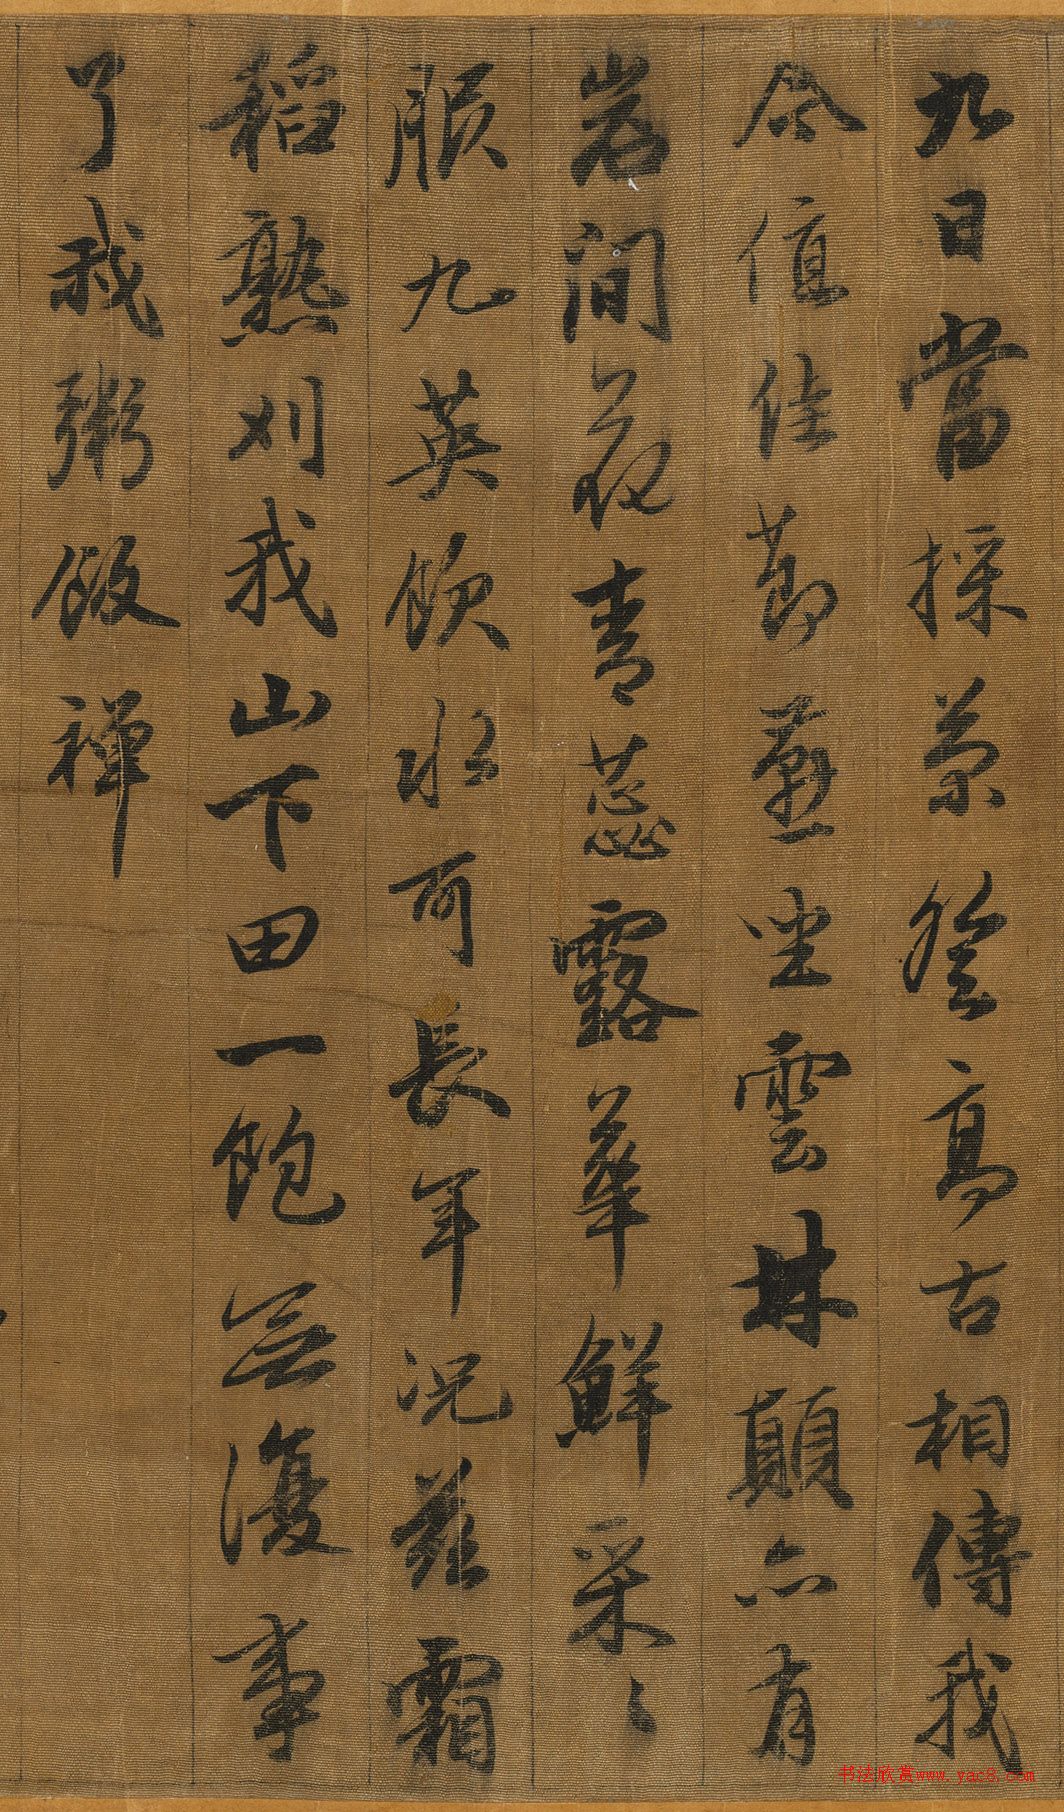 九日當採菊登高古相傳我
今值佳節燕坐雲林顛亦有
岩間花青蕊露華鮮采〻
服九英飲水可長年況茲霜
稻熟刈我山下田一飽無復事
了我粥飯禪
书法欣赏www.yac8.com